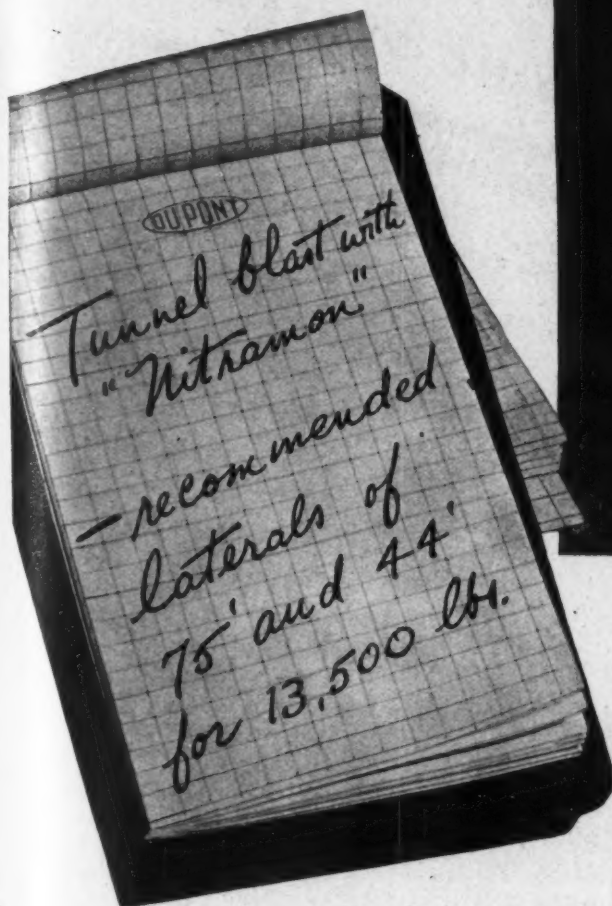 DUPONT
Tunnel blast with
"Nitramon"
- recommended
laterals of
75' and 44'
for 13,500 lbs.